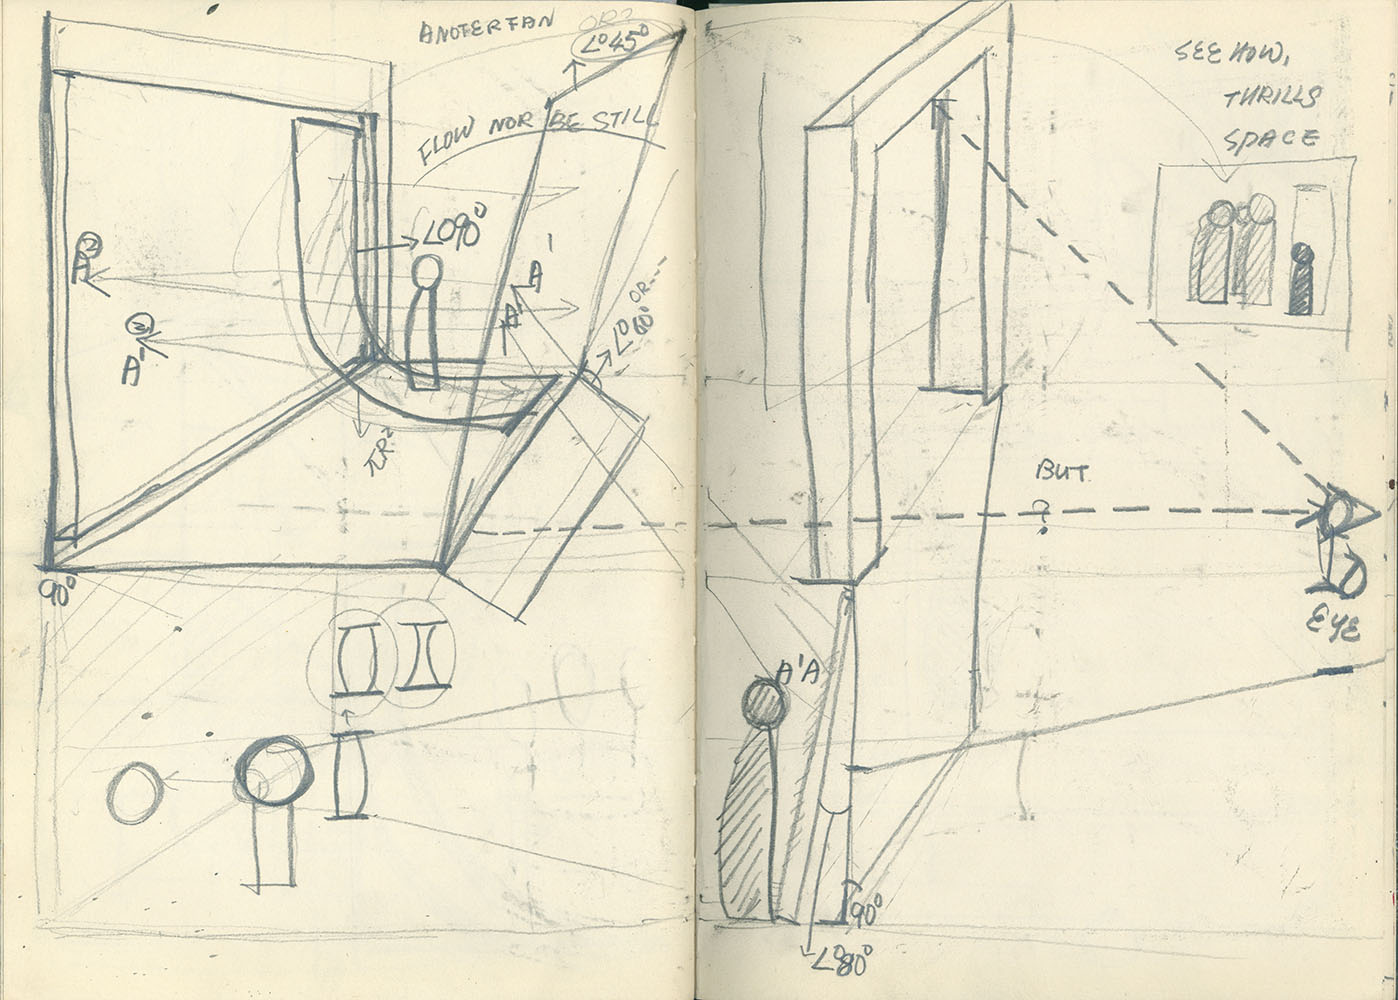 ANOTERFAN
OR?
L°45°
FLOW NOR BE STILL
2
A
L090°
A'
A'
2
A'
L°60° OR...
πR²
90°
SEE HOW,
THRILLS
SPACE
BUT
?
EYE
A'A
90°
L°80°